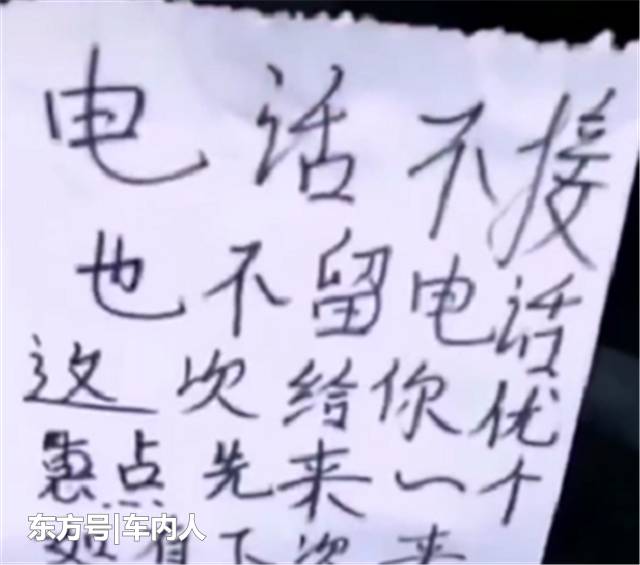 电话不接
也不留电话
这次给你优
惠点先来一个
如有下次来
东方号|车内人